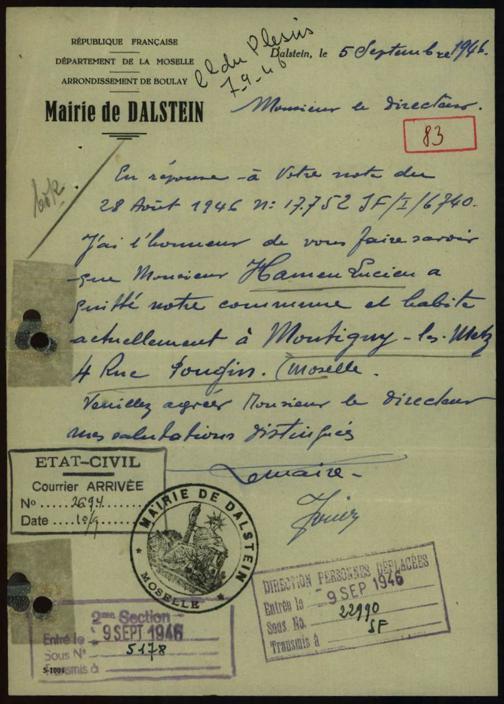 RÉPUBLIQUE FRANÇAISE
DÉPARTEMENT DE LA MOSELLE
ARRONDISSEMENT DE BOULAY
Mairie de DALSTEIN
Dalstein, le 5 Septembre 1946.
7-9-46
Monsieur le directeur.
83
En réponse à Votre note du
28 Août 1946 N: 17.752 SF/I/6740.
J'ai l'honneur de vous faire savoir
que Monsieur Hamen Lucien a
quitté notre commune et habite
actuellement à Montigny-les-Metz
4 Rue (Moselle.
Veuillez agréer Monsieur le directeur
mes salutations distingués
Lemaire-
ETAT-CIVIL
Courrier ARRIVÉE
No ...2694
Date ....10/9
MAIRIE DE DALSTEIN
MOSELLE
DIRECTION PERSONNES DÉPLACÉES
Entrée le 9 SEP 1946
Sous No. 22990
SF
Transmis à
2me Section
Entré le 9 SEPT 1946
Sous N° 5178
Transmis à
S-1004